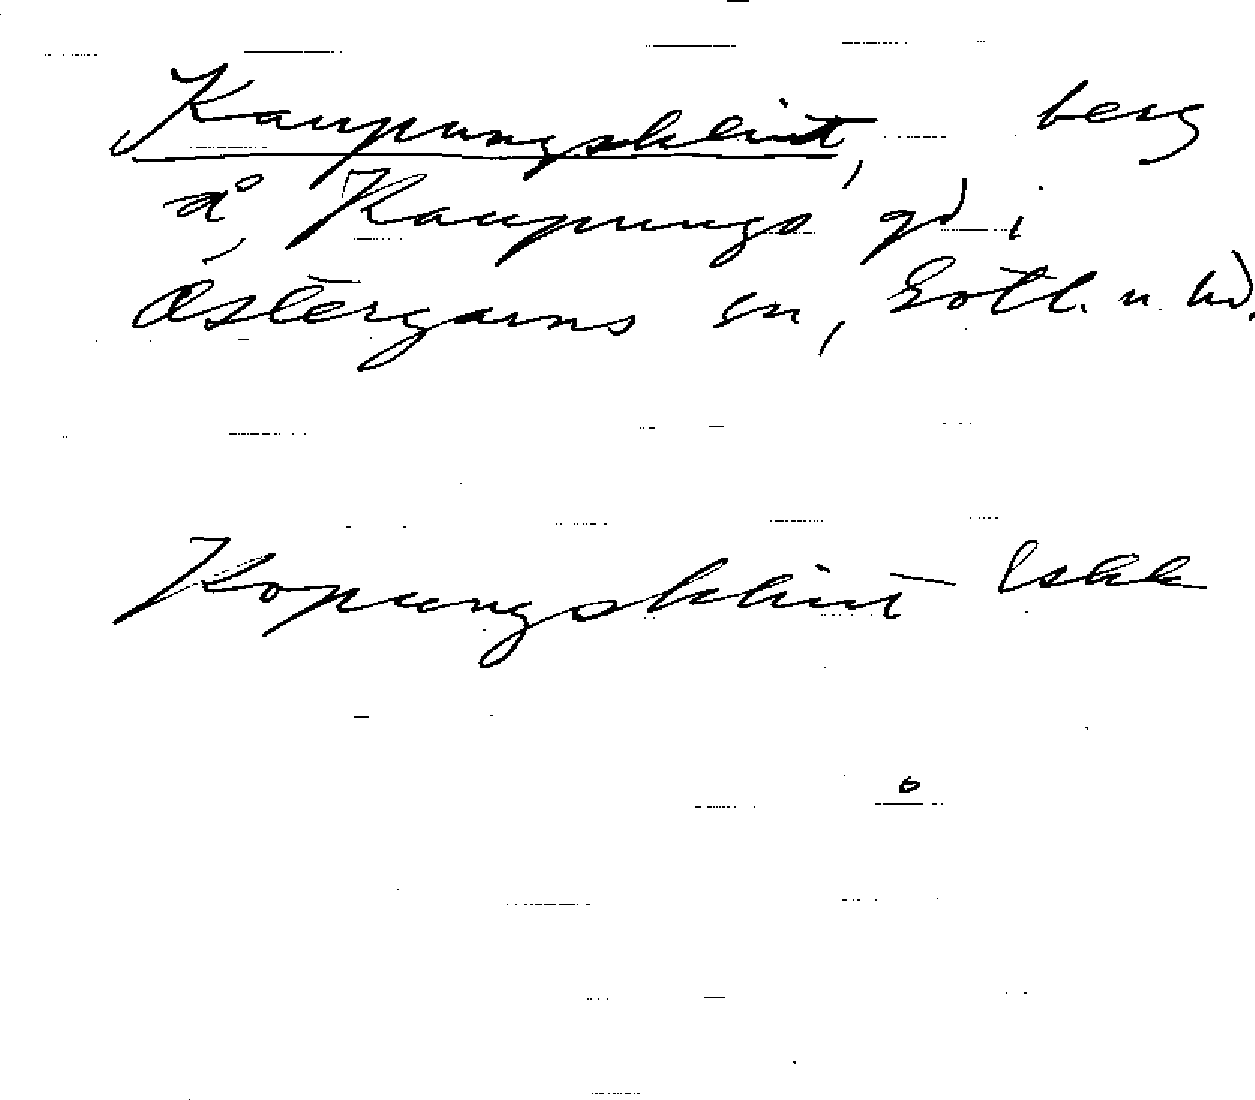 Kaupungsklint, berg
å Kaupungs gd i
Östergarns sn, Gotl. n hd.
Kopungsklint Eskk